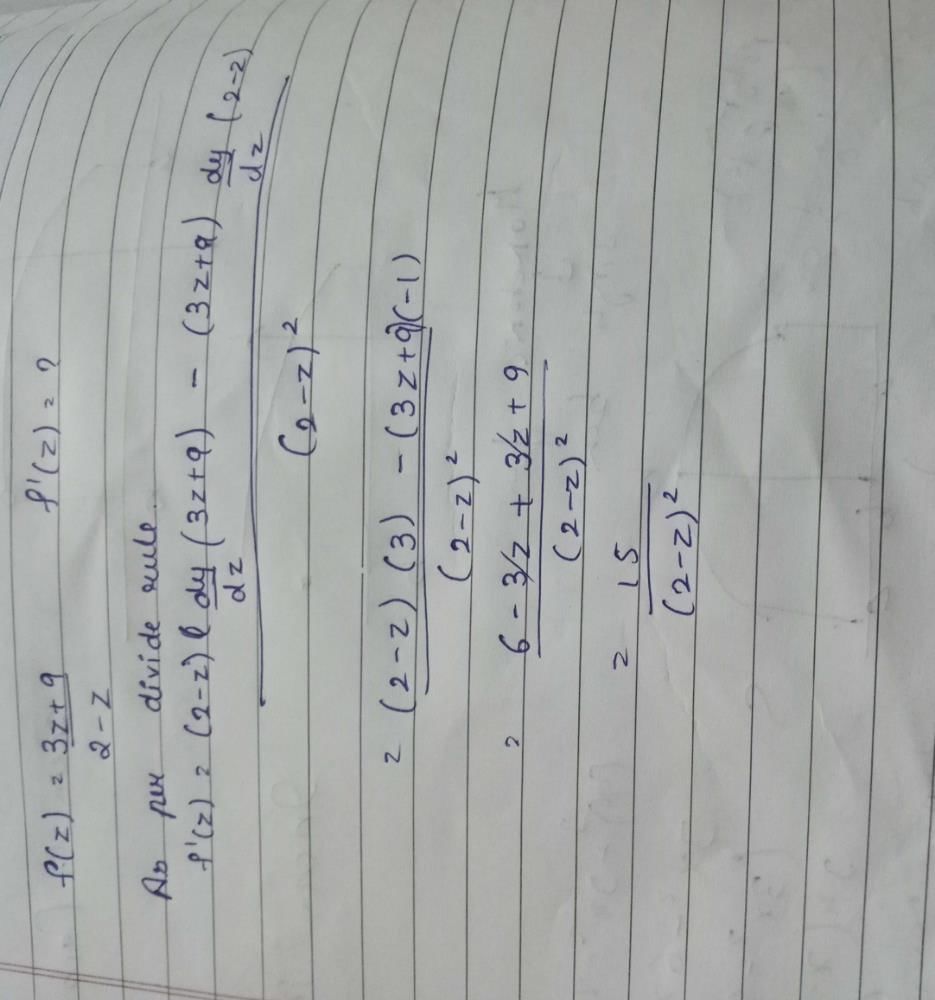 f(z) = 3z+9 f'(z) = ?
2-z
As per divide rule
f'(z) = (2-z) dy (3z+9) - (3z+9) dy (2-z)
dz dz
(2-z)²
= (2-z) (3) - (3z+9)(-1)
(2-z)²
= 6 - 3z + 3z + 9
(2-z)²
= 15
(2-z)²